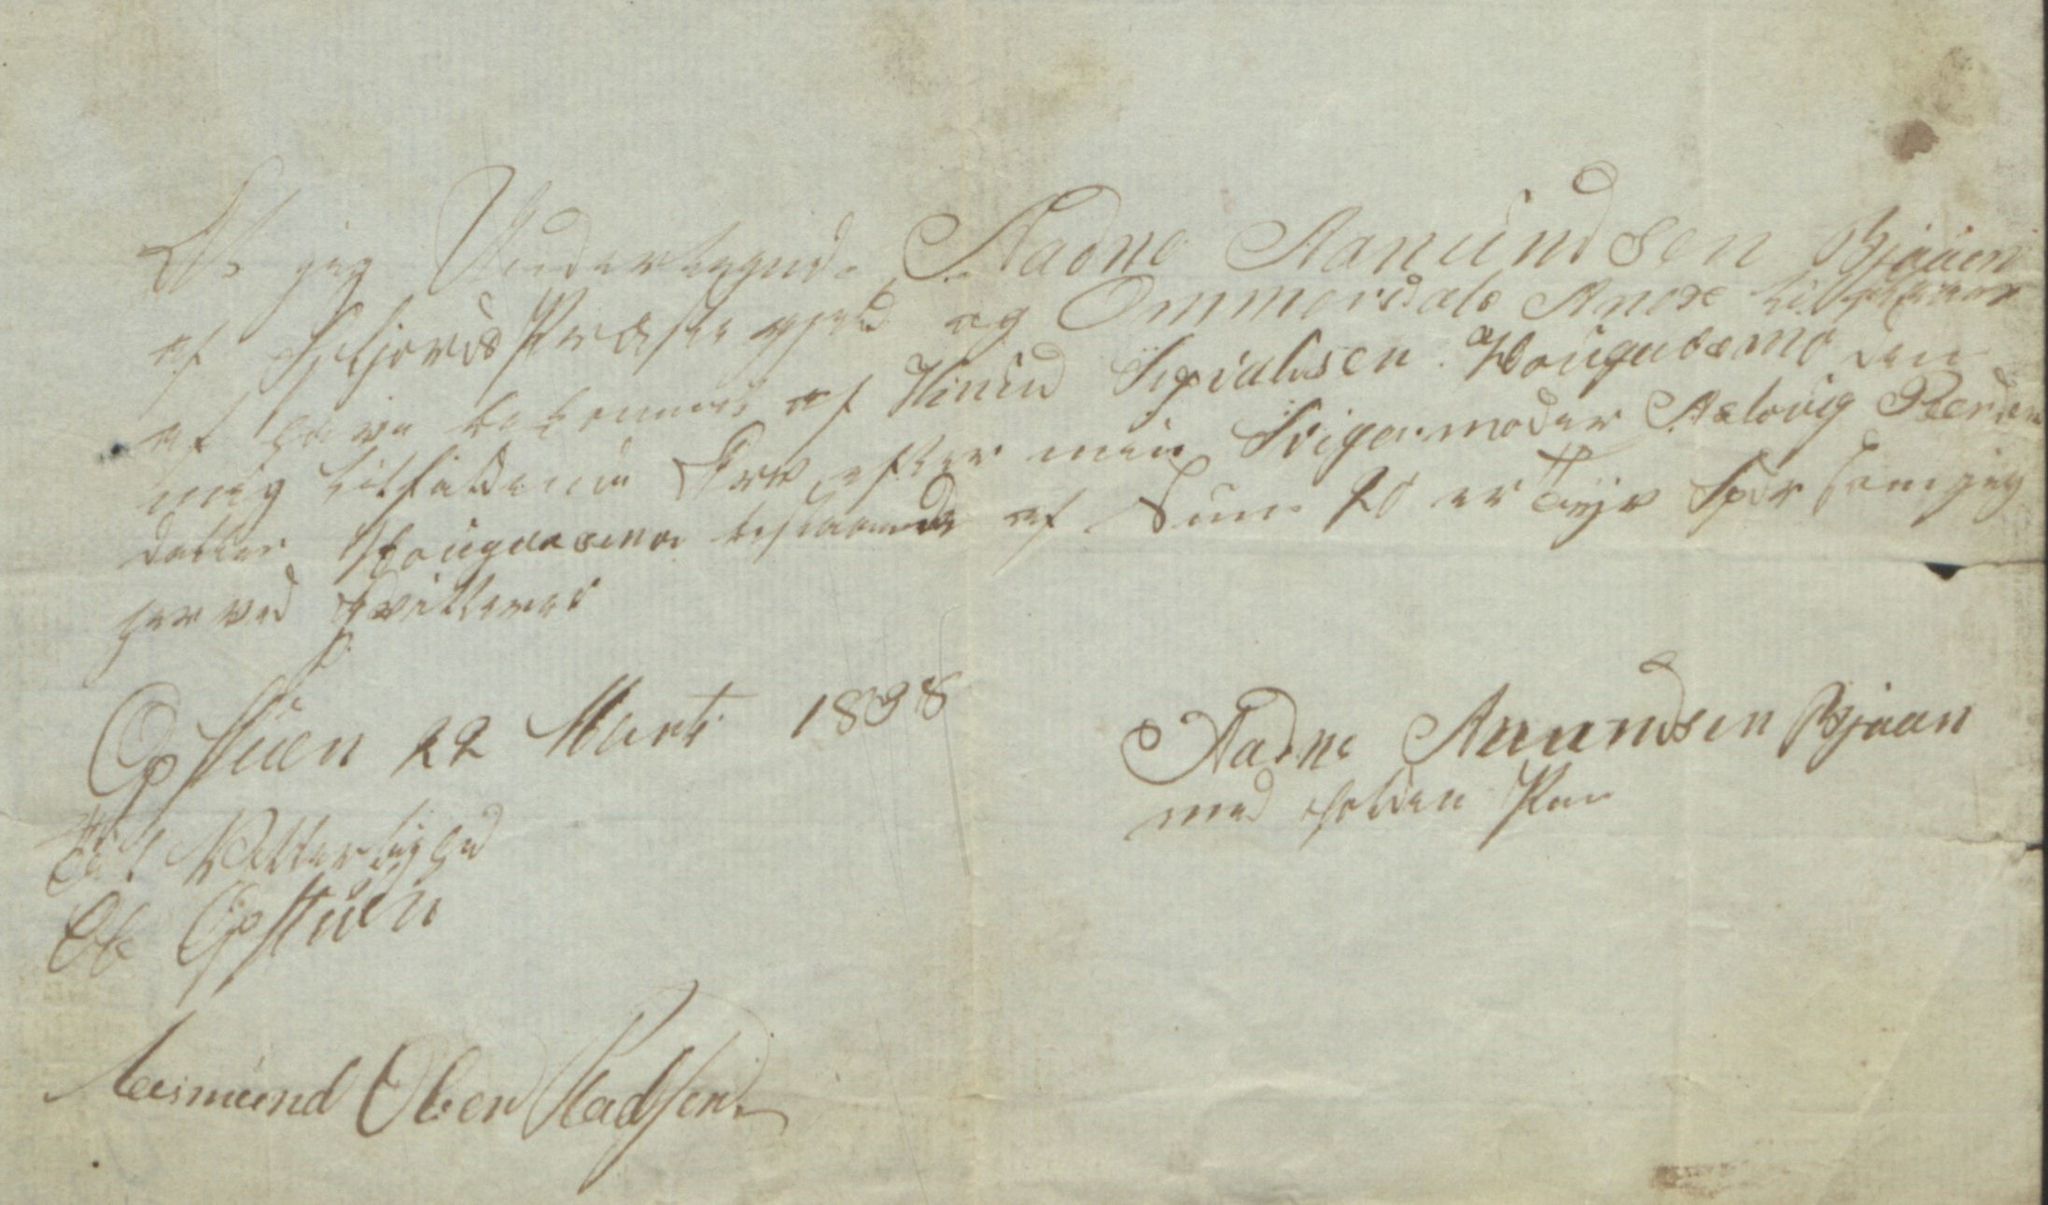 At jeg Undertegnede Aadne Aanundsen Bjaaen
af Hjtjords Præstegjeld og Ommersdals Anex tilstaaer
at have bekommet af Kinud Sigialsen Hougaasmo den
mig tilfaldenne Arv efter min Svigermoder Asloug Berdes
datter Hougaasmo bestaaende af Sum 20 er Tyve Spdr som jeg
herved qvitterer
Opstuen 22 Marti 1838
Aadne Anundsen Bjaaen
med holden Pen
Til Vitterlighed
Ole Opstuen
Aasmund Olsen Stadsen